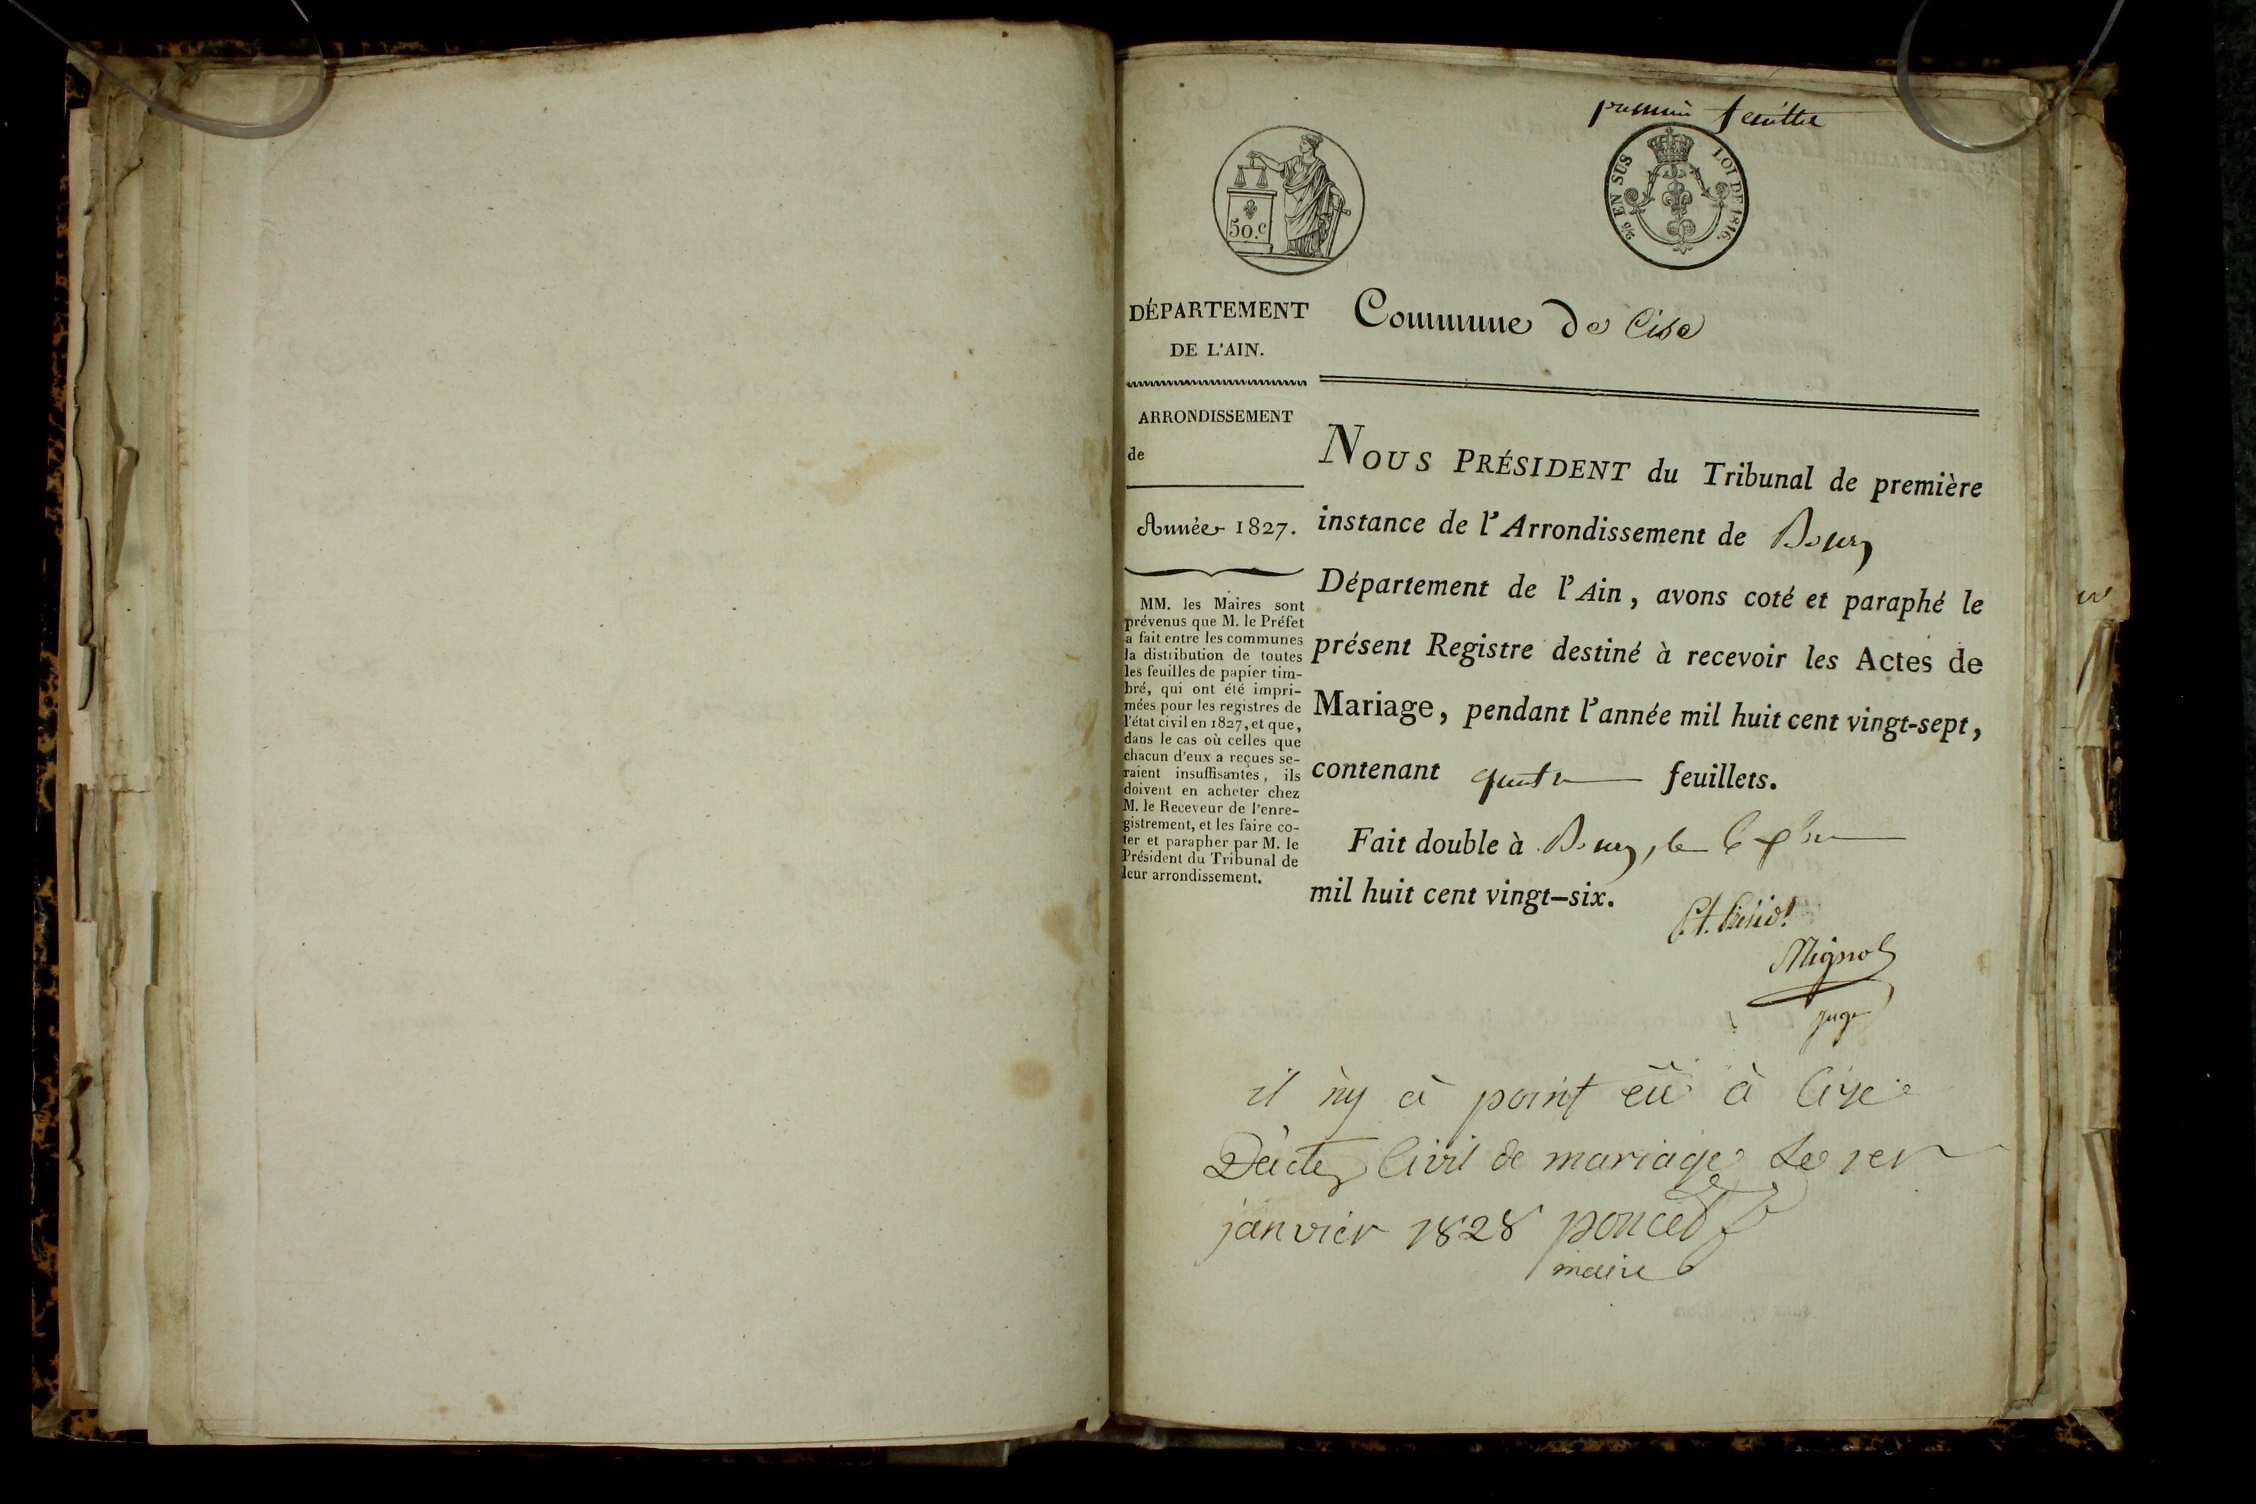 premier feuillet
50.c
2/6 EN SUS LOI DE 1816.
DÉPARTEMENT
DE L'AIN.
Commune de Cise
ARRONDISSEMENT
de
Année 1827.
MM. les Maires sont
prévenus que M. le Préfet
a fait entre les communes
la distribution de toutes
les feuilles de papier tim-
bré, qui ont été impri-
mées pour les registres de
l'état civil en 1827, et que,
dans le cas où celles que
chacun d'eux a reçues se-
raient insuffisantes, ils
doivent en acheter chez
M. le Receveur de l'enre-
gistrement, et les faire co-
ter et parapher par M. le
Président du Tribunal de
leur arrondissement.
NOUS PRÉSIDENT du Tribunal de première
instance de l'Arrondissement de Bourg
Département de l'Ain, avons coté et paraphé le
présent Registre destiné à recevoir les Actes de
Mariage, pendant l'année mil huit cent vingt-sept,
contenant quatre feuillets.
Fait double à Bourg, le
mil huit cent vingt-six.
Mignot
juge
il n'y à point eü à Cize
D'acte Civil de mariage Le 1er
janvier 1828 poncet
maire